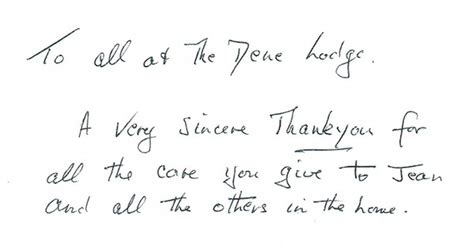 To all at The Dene Lodge.
A Very Sincere Thankyou for
all the care you give to Jean
and all the others in the home.